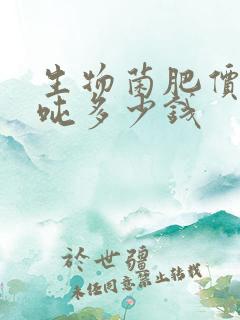 生物菌肥價
吨多少錢
於世疆
未经同意禁止转载